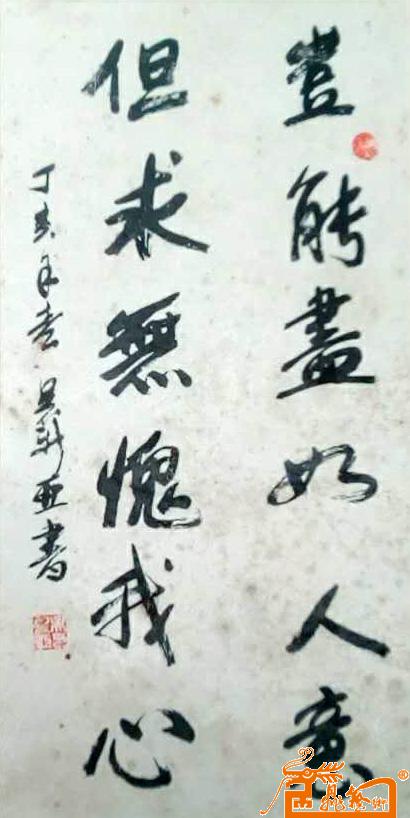 豈能盡如人意
但求無愧我心
丁亥年春 吳新亚書